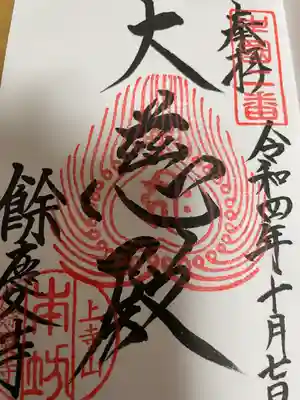 奉拝
令和四年十月七日
大慈殿
餘慶寺
上寺山
本坊